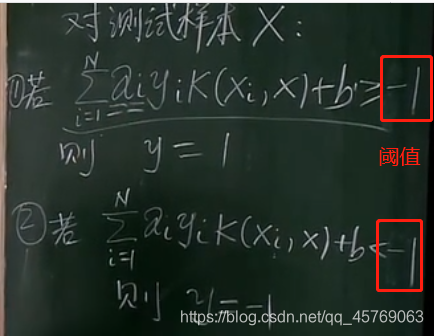 对测试样本 X:
①若 $\sum_{i=1}^{N} \alpha_i y_i K(X_i, X) + b \geq -1$
则 y = 1
阈值
②若 $\sum_{i=1}^{N} \alpha_i y_i K(X_i, X) + b < -1$
则 y = -1
https://blog.csdn.net/qq_45769063